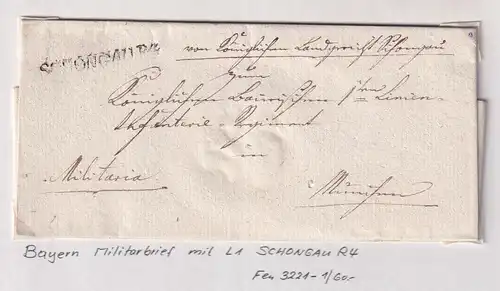 SCHONGAU R4
von Königlichen Landgericht Schongau
zum
Königlichen Baierischen 1ten Linien-
Infanterie-Regiment
in
Militaria.
München
Bayern Militärbrief mit L1 SCHONGAU R4
Feu 3221-1/60.-